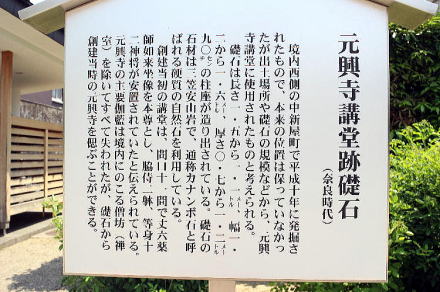 元興寺講堂跡礎石
（奈良時代）
境内西側の中新屋町で平成十年に発掘さ
れたもので、本来の位置は保っていなかっ
たが出土場所や礎石の規模などから、元興
寺講堂に使用されたものと考えられる。
礎石は長さ一・五から一・一メートル、幅一・
二から一・六メートル、厚さ〇・七から一・二メートル
九〇センチの柱座が造り出されている。礎石の
石材は三笠安山岩で、通称カナンボ石と呼
ばれる硬質の自然石を利用している。
創建当初の講堂は、間口十一間で丈六薬
師如来坐像を本尊とし、脇侍二躰、等身十
二神将が安置されていたと伝えられている。
元興寺の主要伽藍は境内にのこる僧坊（禅
室）を除いてすべて失われたが、礎石から
創建当時の元興寺を偲ぶことができる。